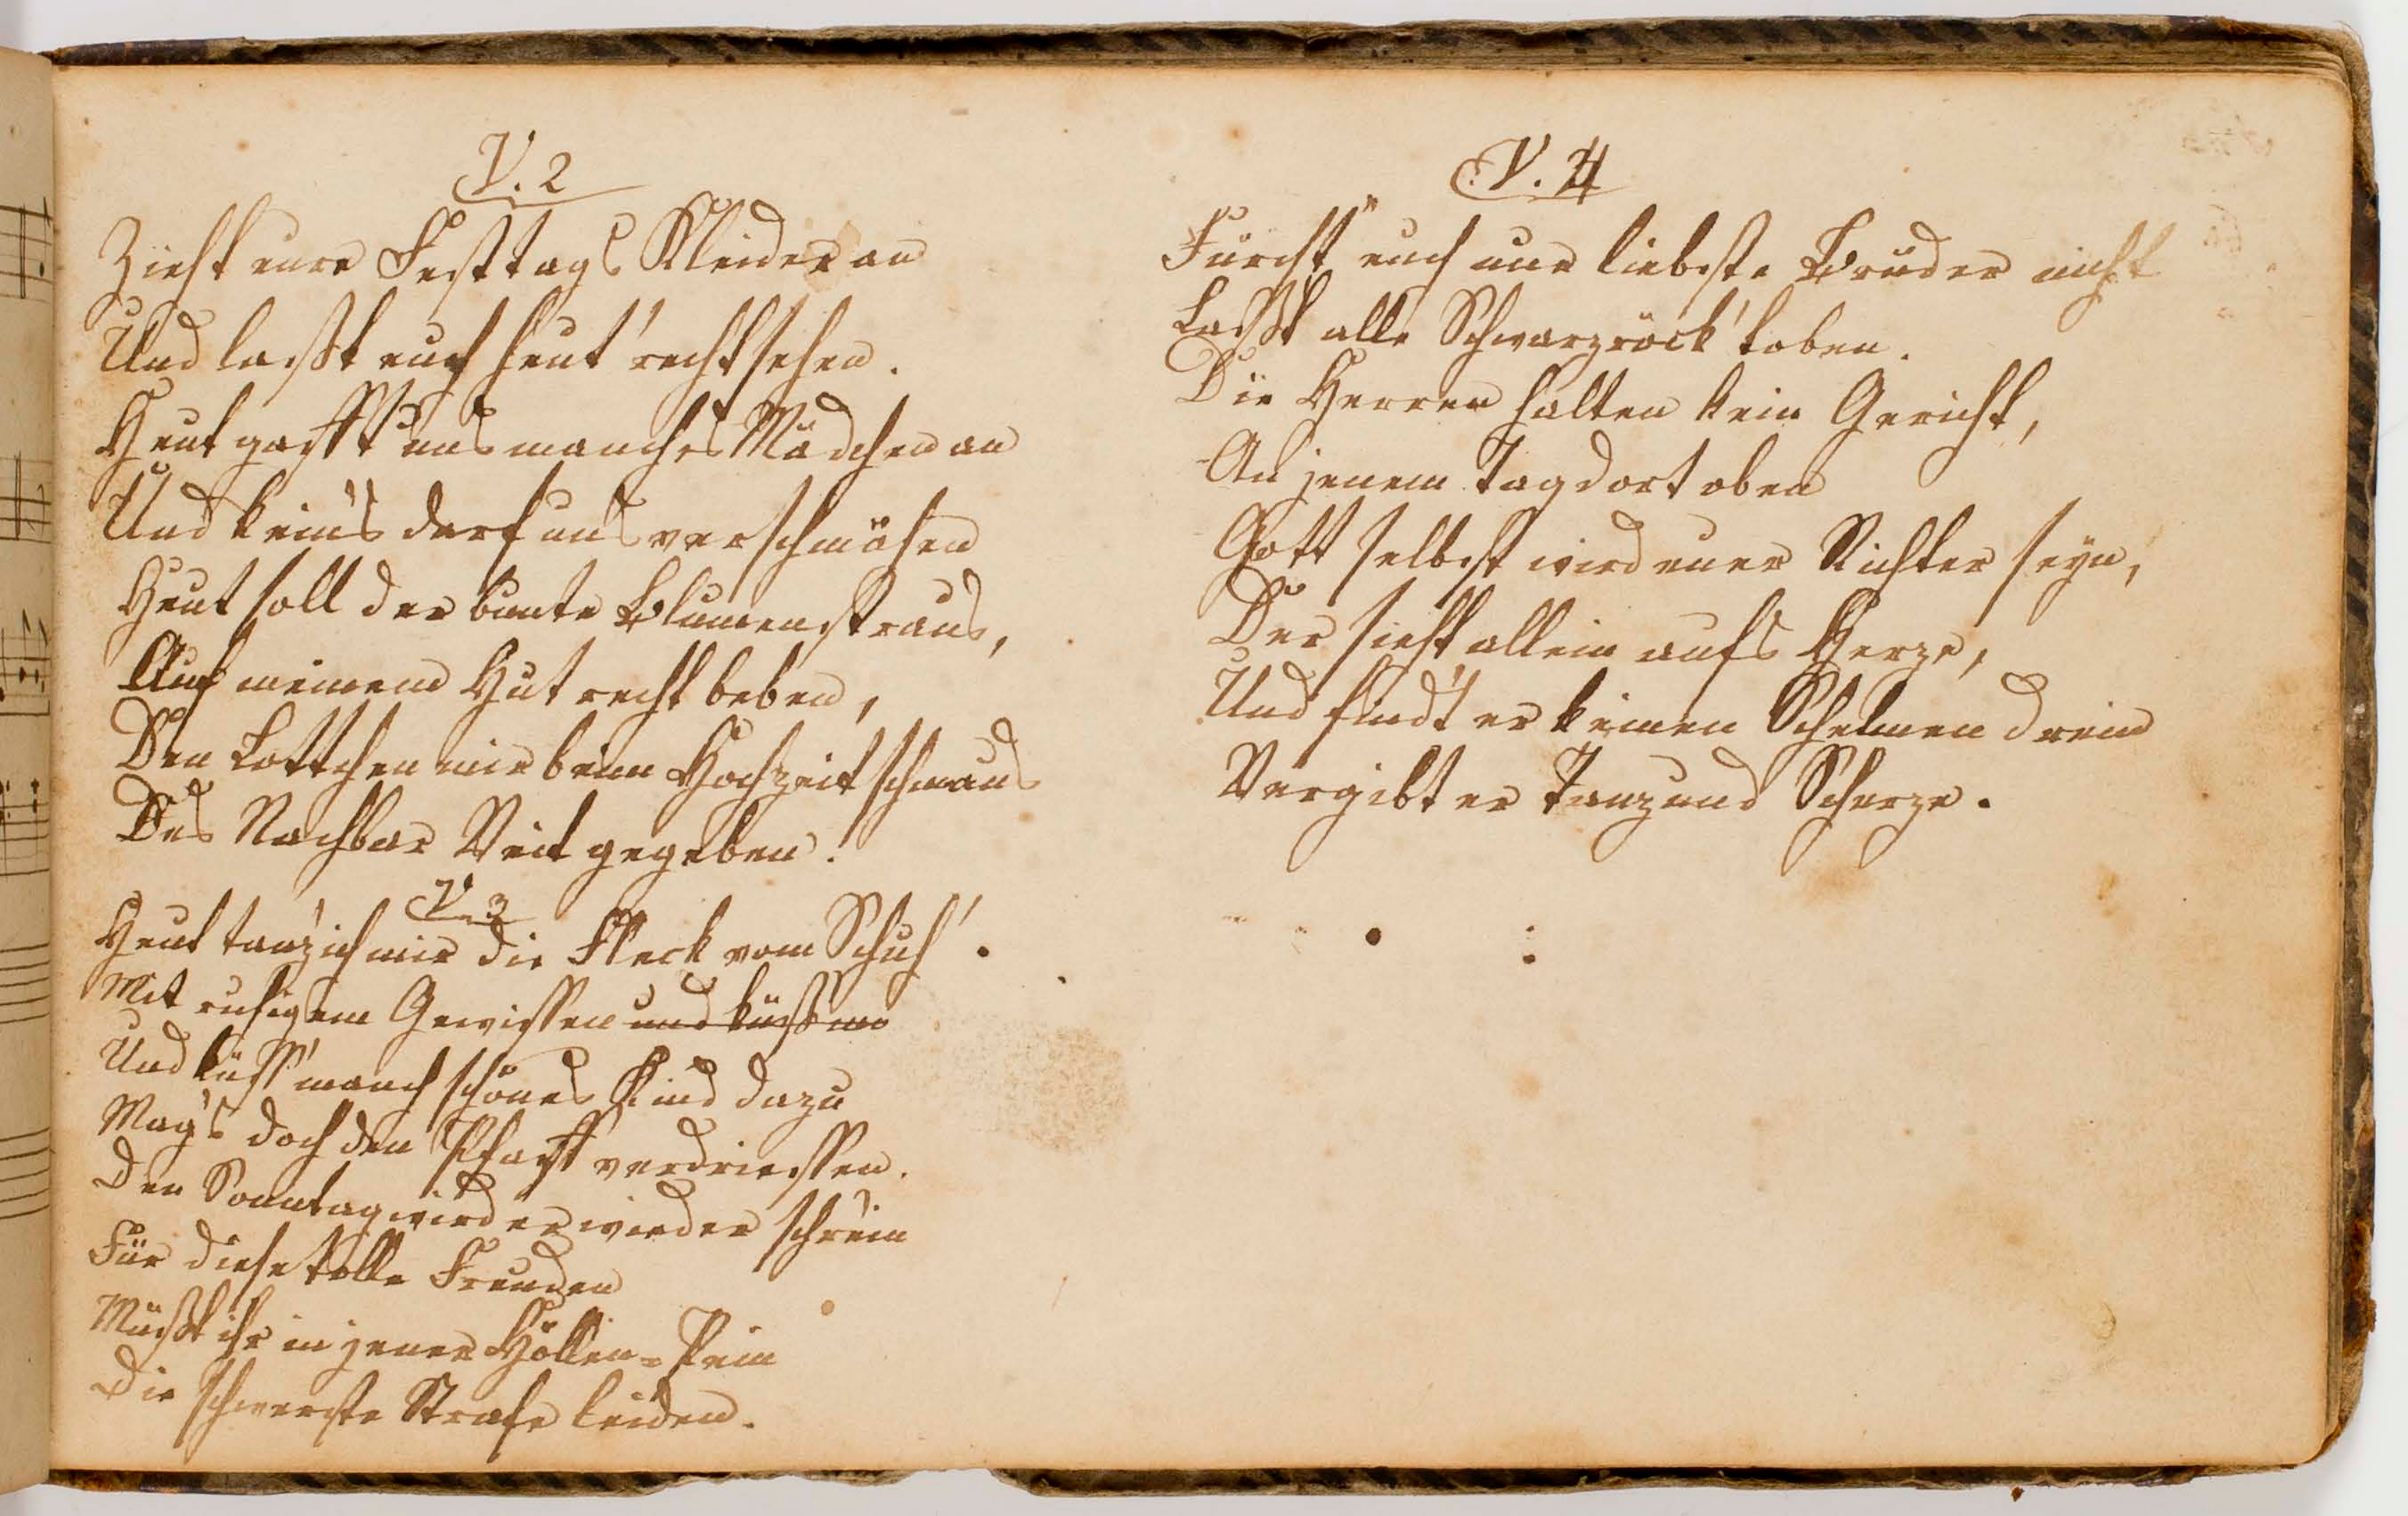 V. 2
Zieht eure Festtags Kleider an
Und laßt euch heut' recht sehen.
Heut gafft uns manches Mädchen an
Und keins darf uns verschmähen
Heut soll der bunte Blumenstraus,
Auf meinem Hut recht beben,
Den Lottchen mir beim Hochzeitschmaus
Des Nachbar Veit gegeben.
V. 3
Heut tanz' ich mir die Fleck vom Schuh'.
Mit ruhigem Gewissen und küß ma
Und küss' manch schönes Kind dazu
Mag's doch den Pfaff verdriessen.
Den Sonntag wird er wieder schrein
Für diese tolle Freuden
Müßt ihr in jener Höllen=Pein
Die schwerste Strafe leiden.
V. 4
Fürcht euch nur liebste Brüder nicht
Laßt alle Schwarzröck' toben.
Die Herren halten kein Gericht,
An jenem Tag dort oben
Gott selbst wird euer Richter seyn,
Der sieht allein aufs Herze,
Und findt er keinen Schelmen drein
Vergibt er Tanz und Scherze.